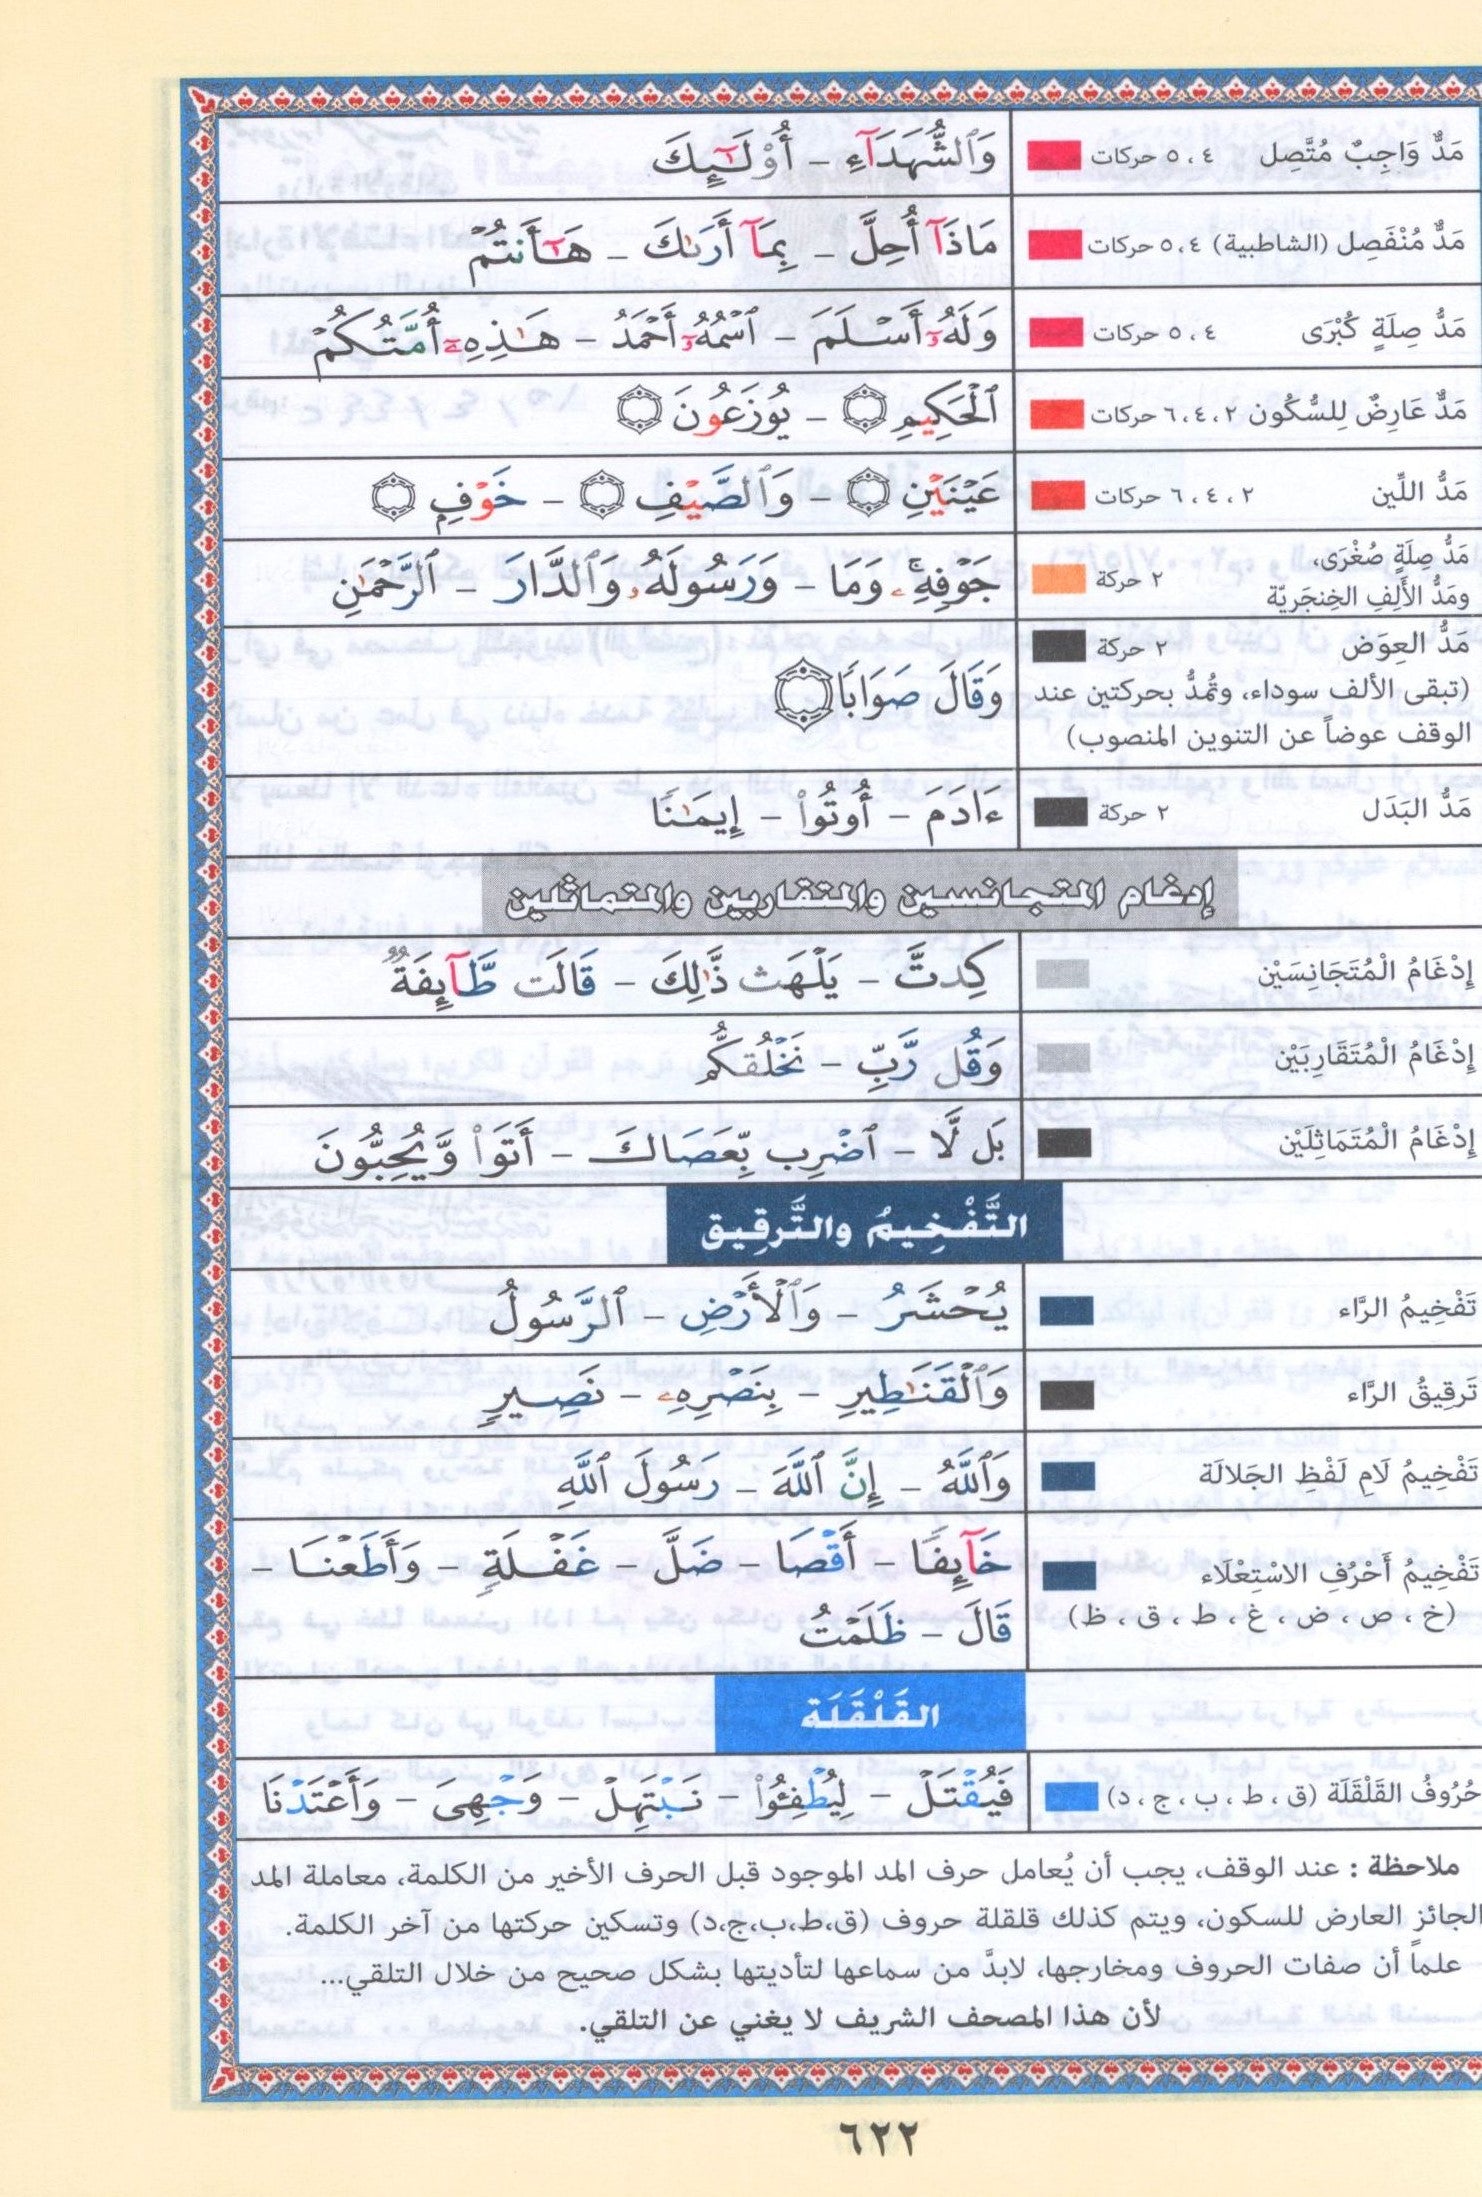 مَدٌّ وَاجِبٌ مُتَّصِل ٤ ، ٥ حركات وَٱلشُّهَدَآءِ - أُوْلَـٰٓئِكَ
مَدٌّ مُنْفَصِل (الشاطبية) ٤ ، ٥ حركات مَاذَآ أُحِلَّ - بِمَآ أَرَىٰكَ - هَـٰٓأَنتُمْ
مَدُّ صِلَةٍ كُبْرَى ٤ ، ٥ حركات وَلَهُۥٓ أَسْلَمَ - ٱسْمُهُۥٓ أَحْمَدُ - هَـٰذِهِۦٓ أُمَّتُكُمْ
مَدٌّ عَارِضٌ لِلسُّكُون ٢ ، ٤ ، ٦ حركات ٱلْحَكِيمِ - يُوزَعُونَ
مَدُّ اللِّين ٢ ، ٤ ، ٦ حركات عَيْنَيْنِ - وَٱلصَّيْفِ - خَوْفٍ
مَدُّ صِلَةٍ صُغْرَى،
ومَدُّ الأَلِفِ الخِنجَريّة ٢ حركة جَوْفِهِۦۚ وَمَا - وَرَسُولَهُۥ وَٱلدَّارَ - ٱلرَّحْمَـٰنِ
مَدُّ العِوَض ٢ حركة
(تبقى الألف سوداء، وتُمدُّ بحركتين عند وَقَالَ صَوَابًا
الوقف عوضاً عن التنوين المنصوب)
مَدُّ البَدَل ٢ حركة ءَادَمَ - أُوتُوا۟ - إِيمَـٰنًا
إدغام المتجانسين والمتقاربين والمتماثلين
إِدْغَامُ الْمُتَجَانِسَيْن كِدتَّ - يَلْهَث ذَّٰلِكَ - قَالَت طَّآئِفَةٌ
إِدْغَامُ الْمُتَقَارِبَيْن وَقُل رَّبِّ - نَخْلُقكُّم
إِدْغَامُ الْمُتَمَاثِلَيْن بَل لَّا - ٱضْرِب بِّعَصَاكَ - أَتَوا۟ وَّيُحِبُّونَ
التَّفْخِيمُ والتَّرقِيق
تَفْخِيمُ الرَّاء يُحْشَرُ - وَٱلْأَرْضِ - ٱلرَّسُولُ
تَرقِيقُ الرَّاء وَٱلْقَنَـٰطِيرِ - بِنَصْرِهِۦ - نَصِيرٍ
تَفْخِيمُ لَامِ لَفْظِ الجَلالَة وَٱللَّهُ - إِنَّ ٱللَّهَ - رَسُولَ ٱللَّهِ
تَفْخِيمُ أَحْرُفِ الاسْتِعْلَاء خَآئِفًا - أَقْصَا - ضَلَّ - غَفْلَةٍ - وَأَطَعْنَا -
(خ ، ص ، ض ، غ ، ط ، ق ، ظ) قَالَ - ظَلَمْتُ
القَلْقَلَة
حُرُوفُ القَلْقَلَة (ق ، ط ، ب ، ج ، د) فَيُقْتَلْ - لِيُطْفِـُٔوا۟ - نَبْتَهِلْ - وَجْهِىَ - وَأَعْتَدْنَا
ملاحظة : عند الوقف، يجب أن يُعامل حرف المد الموجود قبل الحرف الأخير من الكلمة، معاملة المد
الجائز العارض للسكون، ويتم كذلك قلقلة حروف (ق،ط،ب،ج،د) وتسكين حركتها من آخر الكلمة.
علماً أن صفات الحروف ومخارجها، لابدَّ من سماعها لتأديتها بشكل صحيح من خلال التلقي...
لأن هذا المصحف الشريف لا يغني عن التلقي.
٦٢٢